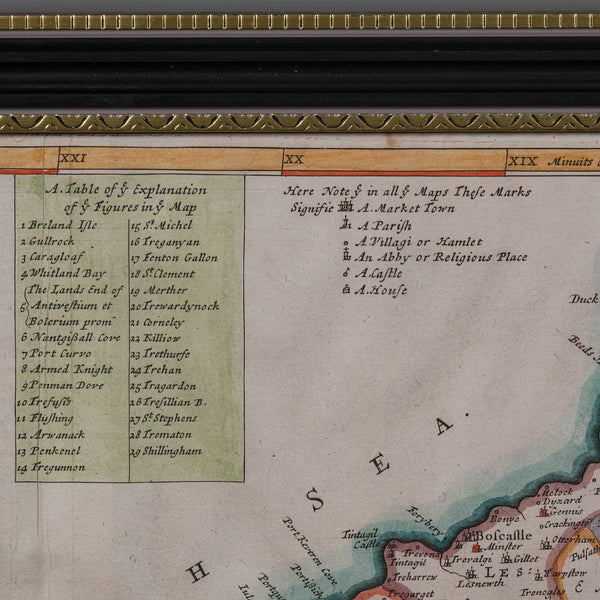 XXI
XX
XIX Minuits
A. Table of ẙ Explanation
of ẙ Figures in ẙ Map
1 Breland Iſle
2 Gullrock
3 Caragloaf
4 Whitland Bay
5 (The Lands End of
Antiveſtium et
Bolerium prom
6 Nantgiſsall Cove
7 Port Curvo
8 Armed Knight
9 Penman Dove
10 Trefuſis
11 Fluſhing
12 Arwanack
13 Penkenel
14 Tregunnon
15 St. Michel
16 Treganyan
17 Fenton Gallon
18 St. Clement
19 Merther
20 Trewardynock
21 Corneley
22 Killiow
23 Trethurfe
24 Trehan
25 Tragardon
26 Treſillian B.
27 St. Stephens
28 Trematon
29 Shillingham
Here Note ẙ in all ẙ Maps Theſe Marks
Signifie A. Market Town
A Pariſh
A Villagi or Hamlet
An Abby or Religious Place
A Caſtle
A. Houſe
Duck
Beeds
H
S E A.
Forybery
Tintagil
Caſtle
Port Keveren Cove
Portiſsick
Boſcaſtle
Minſter
Bonye
Dyzard
Gennis
Crackington
Otterham
Trevena
Trevalgi
Gillet
LES
Leſnewth
Warpſtow
Treharrew
Tregarget
Trenogles